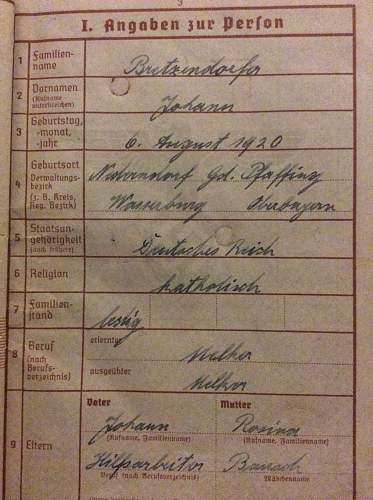 I. Angaben zur Person
1 Familien-
name Bretzendorfer
2 Vornamen
(Rufname
unterstreichen) Johann
3 Geburtstag,
-monat,
-jahr 6. August 1920
4 Geburtsort
Verwaltungs-
bezirk
(z. B. Kreis,
Reg. Bezirk)
Niederndorf Gd. Pfaffing
Wasserburg Oberbayern
5 Staatsan-
gehörigkeit
(auch frühere) Deutsches Reich
6 Religion katholisch
7 Familien-
stand ledig
8 Beruf
(nach
Berufs-
verzeichnis)
erlernter Melker
ausgeübter Melker
9 Eltern
Vater Mutter
Johann Rosina
(Rufname, Familienname) (Rufname, Familienname)
Hilfsarbeiter
Beruf (nach Berufsverzeichnis) Mädchenname